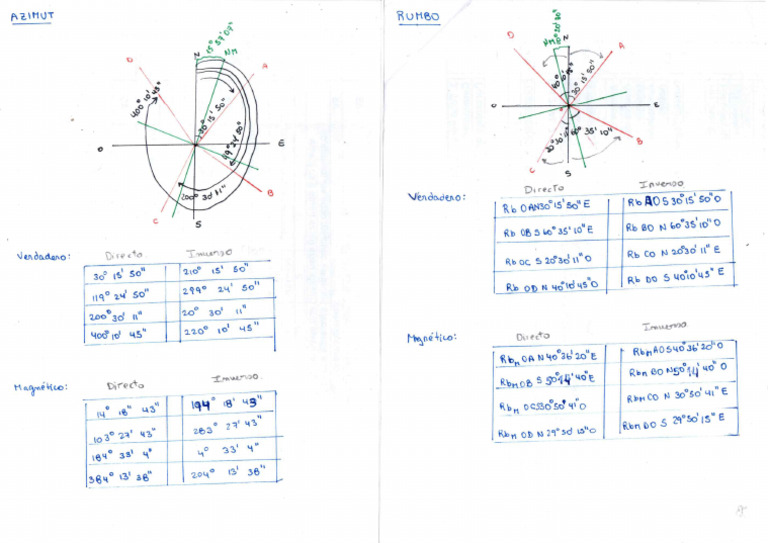 AZIMUT
15° 57' 07"
N
NM
D
A
400° 10' 45"
30° 15' 50"
119° 24' 50"
O
E
200° 30' 11"
B
C
S
Verdadero:
Directo Inverso
30° 15' 50" 210° 15' 50"
119° 24' 50" 299° 24' 50"
200° 30' 11" 20° 30' 11"
400° 10' 45" 220° 10' 45"
Magnético:
Directo Inverso
14° 18" 43" 194° 18' 43"
103° 27' 43" 283° 27' 43"
184° 33' 4" 4° 33' 4"
384° 13' 38" 204° 13' 38"
RUMBO
10° 20' 30"
NM
N
D
A
30° 15' 50"
O
E
20° 30' 11"
60° 35' 10"
B
C
S
Verdadero:
Directo Inverso
Rb OA N30° 15' 50" E Rb AO S 30° 15' 50" O
Rb OB S 60° 35' 10" E Rb BO N 60° 35' 10" O
Rb OC S 20° 30' 11" O Rb CO N 20° 30' 11" E
Rb OD N 40° 10' 45" O Rb DO S 40° 10' 45" E
Magnético:
Directo Inverso
Rbm OA N 40° 36' 20" E Rbm AO S 40° 36' 20" O
Rbm OB S 50° 14' 40" E Rbm BO N 50° 14' 40" O
Rbm OC S 30° 50' 41" O Rbm CO N 30° 50' 41" E
Rbm OD N 29° 50' 15" O Rbm DO S 29° 50' 15" E